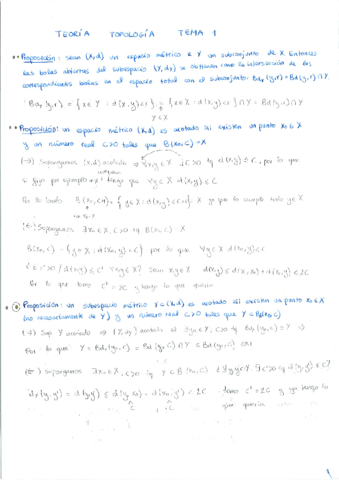 TEORÍA TOPOLOGÍA TEMA 1
**Proposición: sean (X,d) un espacio métrico e Y un subconjunto de X. Entonces
las bolas abiertas del subespacio (Y,dY) se obtienen como la intersección de las
correspondientes bolas en el espacio total con el subconjunto: BdY(y,r) = Bd(y,r) ∩ Y
BdY(y,r) = {x ∈ Y : d(x,y) < r} = {x ∈ X : d(x,y) < r} ∩ Y = Bd(y,r) ∩ Y
Y ⊂ X
**Proposición: un espacio métrico (X,d) es acotado sii existen un punto x0 ∈ X
y un número real C>0 tales que B(x0,C) = X
(→) Supongamos (X,d) acotado → ∀x,y ∈ X ∃C>0 tq d(x,y) ≤ C, por lo que
si fijo por ejemplo tengo que ∀y ∈ X d(x,y) ≤ C
Por lo tanto {y ∈ X : d(x,y) < C+1} = X ya que lo cumple todo y ∈ X
(←) Supongamos ∃x0 ∈ X, C>0 tq B(x0,C) = X
B(x0,C) = {y ∈ X : d(x0,y) < C} por lo que ∀y ∈ X d(x0,y) < C
¿∃C'>0 / d(x,y) ≤ C' ∀x,y ∈ X? Sean x,y ∈ X d(x,y) ≤ d(x,x0) + d(x0,y) < 2C
Por lo que tomo C' = 2C y tengo lo que quería
Proposición: un subespacio métrico Y ⊂ (X,d) es acotado sii existen un punto x0 ∈ X
(no necesariamente de Y) y un número real C>0 tales que Y ⊂ B(x0,C)
(→) Sup Y acotado → (Y,dY) acotado sii ∃y0 ∈ Y, C>0 tq BdY(y0,C) = Y
Por lo que Y = BdY(y0,C) = Bd(y0,C) ∩ Y ⊂ Bd(y0,C)
(←) Supongamos ∃x0 ∈ X, C>0 tq Y ⊂ B(x0,C)
dY(y,y') = d(y,y') ≤ d(y,x0) + d(x0,y') < 2C tomo C' = 2C y ya tengo lo
que quería
1